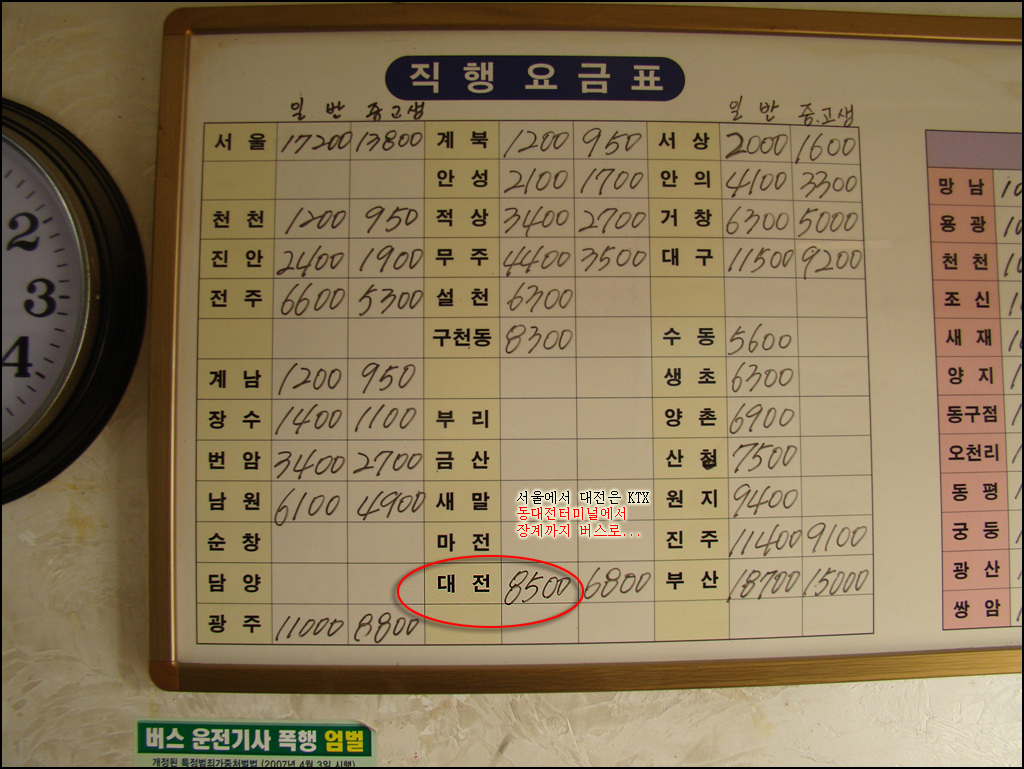 직행요금표
일반 중고생 일반 중.고생
서울 17200 13800 계북 1200 950 서상 2000 1600
안성 2100 1700 안의 4100 3300
천천 1200 950 적상 3400 2700 거창 6300 5000
진안 2400 1900 무주 4400 3500 대구 11500 9200
전주 6600 5300 설천 6300
구천동 8300 수동 5600
계남 1200 950 생초 6300
장수 1400 1100 부리 양촌 6900
번암 3400 2700 금산 산청 7500
남원 6100 4900 새말 원지 9400
순창 마전 진주 11400 9100
담양 대전 8500 6800 부산 18700 15000
광주 11000 8800
서울에서 대전은 KTX
동대전터미널에서
장계까지 버스로...
망남
용광
천천
조신
새재
양지
동구점
오천리
동평
궁동
광산
쌍암
2
3
4
버스 운전기사 폭행 엄벌
개정된 특정범죄가중처벌법 (2007년 4월 3일 시행)